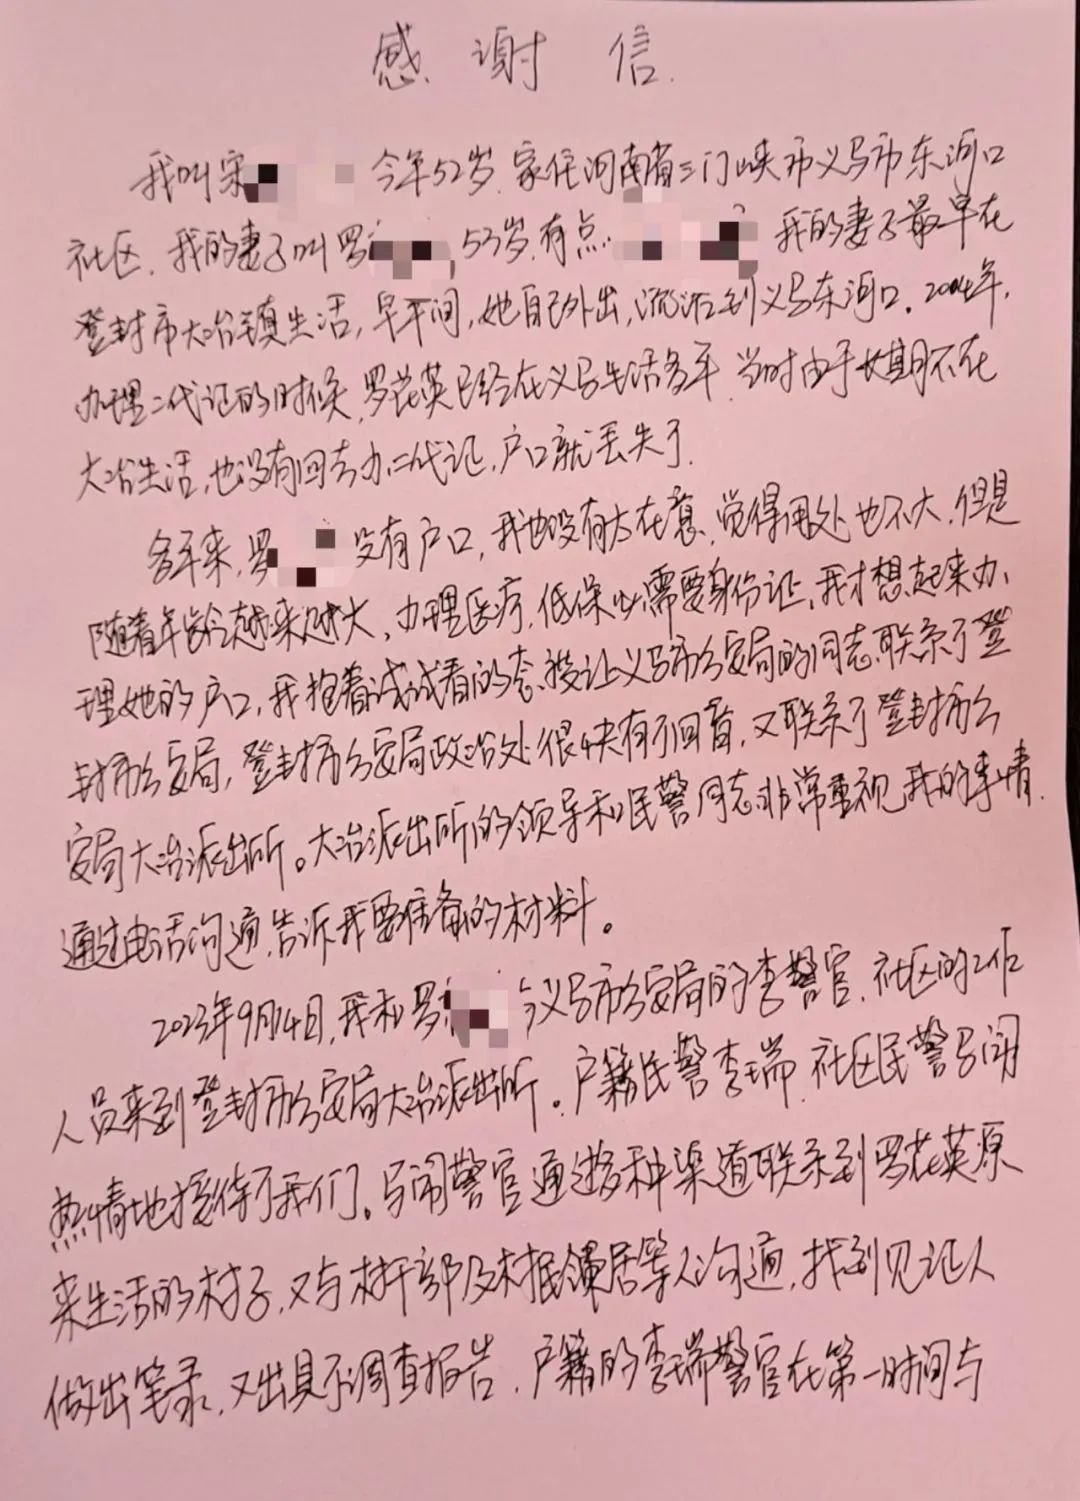 感谢信
我叫宋 今年52岁.家住河南省三门峡市义马市东河口
社区.我的妻子叫罗 53岁,有点 我的妻子最早在
登封市大冶镇生活,早年间,她自己外出,流浪到义马东河口.2004年,
办理二代证的时候,罗花英已经在义马生活多年.当时由于长期不在
大冶生活,也没有回去办二代证,户口就丢失了.
多年来,罗 没有户口,我也没有太在意,觉得用处也不大,但是
随着年龄越来越大,办理医疗.低保必需要身份证,我才想起来办
理她的户口,我抱着试试看的态度让义马市公安局的同志联系了登
封市公安局,登封市公安局政治处很快有了回音,又联系了登封市公
安局大冶派出所。大冶派出所的领导和民警同志非常重视我的事情.
通过电话沟通,告诉我要准备的材料。
2023年9月14日,我和罗 义马市公安局的李警官.社区的工作
人员来到登封市公安局大冶派出所。户籍民警李瑞.社区民警马闯
热情地接待了我们。马闯警官通过多种渠道联系到罗花英原
来生活的村子,又与村干部及村民邻居等人沟通,找到见证人
做出笔录,又出具了调查报告.户籍的李瑞警官在第一时间与